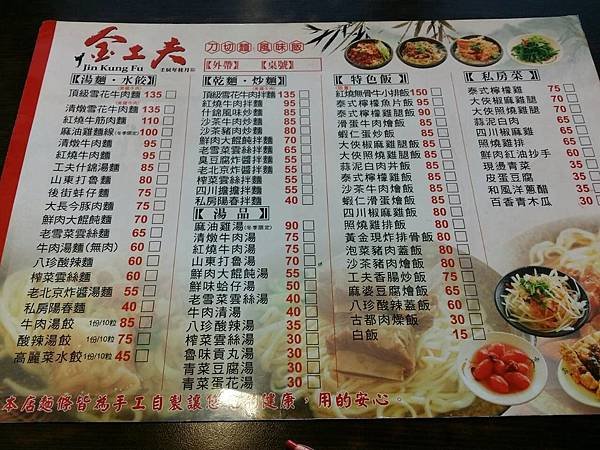 金工夫
Jin Kung Fu
刀切麵 風味飯
【外帶】 【桌號】
【湯麵・水餃】
頂級雪花牛肉麵 135
清燉雪花牛肉麵 135
紅燒牛筋肉麵 110
麻油雞麵線(冬季限定) 100
清燉牛肉麵 95
紅燒牛肉麵 95
工夫什錦湯麵 85
山東打魯麵 80
後街蚌仔麵 75
大長今豚肉麵 75
鮮肉大餛飩麵 70
老雪菜雲絲麵 65
牛肉湯麵(無肉) 60
八珍酸辣麵 60
榨菜雲絲麵 60
老北京炸醬湯麵 55
私房陽春麵 40
牛肉湯餃 1份/10粒 85
酸辣湯餃 1份/10粒 75
高麗菜水餃 1份/10粒 45
【乾麵・炒麵】
頂級雪花牛肉拌麵 135
紅燒牛肉拌麵 95
什錦風味炒麵 85
沙茶牛肉炒麵 85
沙茶豬肉炒麵 80
鮮肉大餛飩拌麵 70
老雪菜雲絲拌麵 65
臭豆腐炸醬拌麵 70
老北京炸醬拌麵 55
榨菜雲絲拌麵 55
四川擔擔拌麵 55
私房陽春拌麵 40
【湯品】
麻油雞湯(冬季限定) 90
清燉牛肉湯 75
紅燒牛肉湯 75
山東打魯湯 70
鮮肉大餛飩湯 55
鮮味蛤仔湯 50
老雪菜雲絲湯 40
牛肉清湯 40
八珍酸辣湯 35
榨菜雲絲湯 30
魯味貢丸湯 30
青菜豆腐湯 30
青菜蛋花湯 30
【特色飯】
紅燒無骨牛小排飯 150
泰式檸檬魚片飯 95
泰式檸檬雞腿飯 90
滑蛋牛肉燴飯 90
蝦仁蛋炒飯 85
大俠椒麻雞腿飯 85
大俠照燒雞腿飯 85
蒜泥白肉丼飯 85
泰式檸檬雞飯 85
沙茶牛肉燴飯 85
蝦仁滑蛋燴飯 85
四川椒麻雞飯 80
照燒雞排飯 80
黃金現炸排骨飯 80
泡菜豬肉蓋飯 80
沙茶豬肉燴飯 80
工夫香腸炒飯 75
麻婆豆腐燴飯 65
八珍酸辣蓋飯 60
古都肉燥飯 30
白飯 15
【私房菜】
泰式檸檬雞 75
大俠椒麻雞腿 70
大俠照燒雞腿 70
蒜泥白肉 65
四川椒麻雞 65
照燒雞排 65
鮮肉紅油抄手 60
現燙青菜 35
皮蛋豆腐 35
和風洋蔥醋 35
百香青木瓜 30
本店麵條皆為手工自製讓您
健康，用的安心。